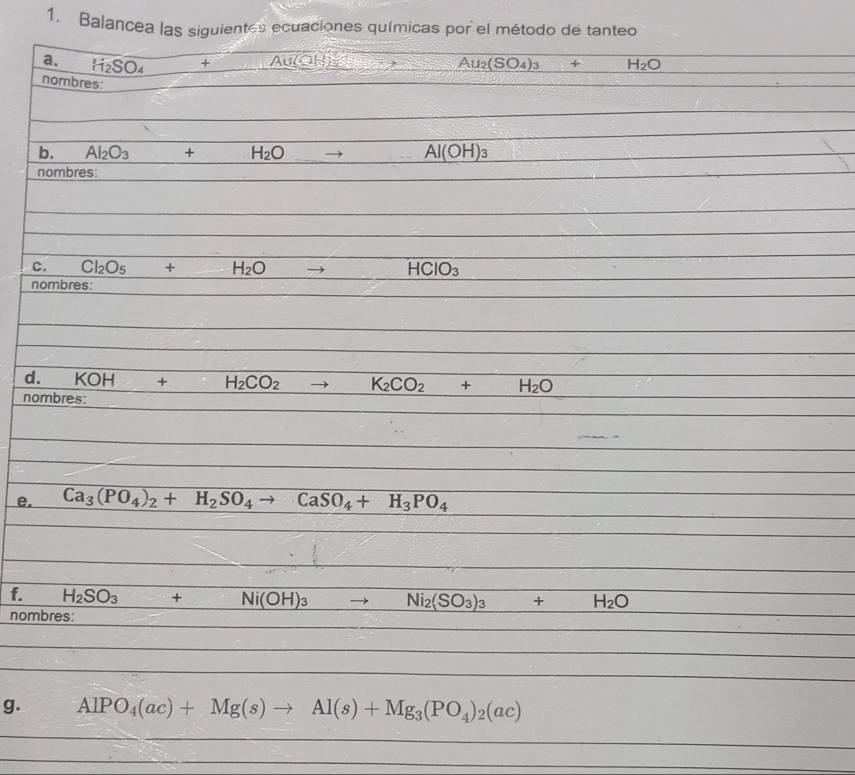 1. Balancea las siguientes ecuaciones químicas por el método de tanteo
a. H₂SO₄ + Au(OH)₃ → Au₂(SO₄)₃ + H₂O
nombres:
b. Al₂O₃ + H₂O → Al(OH)₃
nombres:
c. Cl₂O₅ + H₂O → HClO₃
nombres:
d. KOH + H₂CO₂ → K₂CO₂ + H₂O
nombres:
e. Ca₃(PO₄)₂ + H₂SO₄ → CaSO₄ + H₃PO₄
f. H₂SO₃ + Ni(OH)₃ → Ni₂(SO₃)₃ + H₂O
nombres:
g. AlPO₄(ac) + Mg(s) → Al(s) + Mg₃(PO₄)₂(ac)